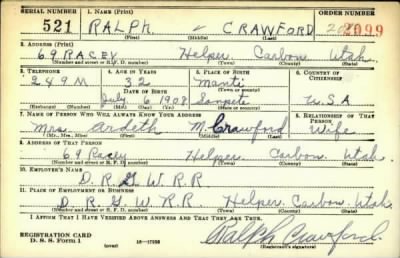 SERIAL NUMBER 1. NAME (Print) ORDER NUMBER
521 RALPH CRAWFORD 2099
(First) (Middle) (Last)
2. ADDRESS (Print)
69 RACEY Helper Carbon Utah.
(Number and street or R. F. D. number) (Town) (County) (State)
3. TELEPHONE 4. AGE IN YEARS 5. PLACE OF BIRTH 6. COUNTRY OF CITIZENSHIP
249M 32 Manti
DATE OF BIRTH
July 6 1908 Sanpete U.S.A
(Exchange) (Number) (Mo.) (Day) (Yr.) (State or country)
7. NAME OF PERSON WHO WILL ALWAYS KNOW YOUR ADDRESS 8. RELATIONSHIP OF THAT PERSON
Mrs. Ardeth M. Crawford Wife
(Mr., Mrs., Miss) (First) (Middle) (Last)
9. ADDRESS OF THAT PERSON
69 Racey Helper Carbon Utah.
(Number and street or R. F. D. number) (Town) (County) (State)
10. EMPLOYER'S NAME
D. R. G. W. R. R.
11. PLACE OF EMPLOYMENT OR BUSINESS
D. R. G. W. R. R. Helper Carbon Utah
(Number and street or R. F. D. number) (Town) (County) (State)
I AFFIRM THAT I HAVE VERIFIED ABOVE ANSWERS AND THAT THEY ARE TRUE.
REGISTRATION CARD
D. S. S. Form 1 16—17105 Ralph Crawford.
(Registrant's signature)